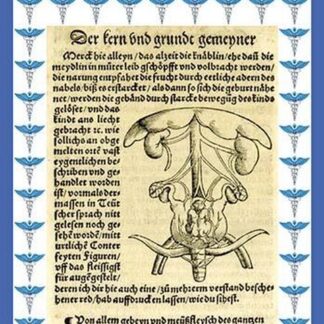 Der kern vnd grundt gemeyner
Merck hie alleyn / das alzeit die knäblin / ehe dañ die
meydlin in můter leib gschöpfft vnd volbracht werden /
die narung entpfahet die frucht durch etliche adern des
nabels / biß es erstarcket / als dann so sich die geburt nähe
net / werden die gebånd durch starcke bewegüg des kinds
gelöset / vnd das
kindt ans liecht
gebracht ꝛc. wie
sollichs an obge
melten ortē vast
eygentlichen be=
schriben vnd ge=
handlet worden
ist / vormals der=
massen in Teüt
scher sprach nitt
gelesen noch ge=
sehē wordē / mitt
natürliche Conter
feyten Figuren /
vff das fleissigst
für augē gestelt /
deren ich dir hie auch eine / zů mehrerm verstand beschrie
bener red / hab auff drucken lassen / wie du sihest.
Von allem gebeyn vnd meüßfleysch des gantzen